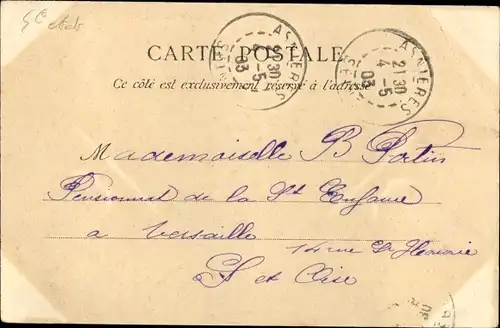 CARTE POSTALE
Ce côté est exclusivement réservé à l'adresse
ASNIERES
21 30
4 - 5
03
ASNIERES
21 30
4 - 5
03
Mademoiselle B
Pensionnat de la Ste Enfance
a Versaille
14 rue
S et Oise